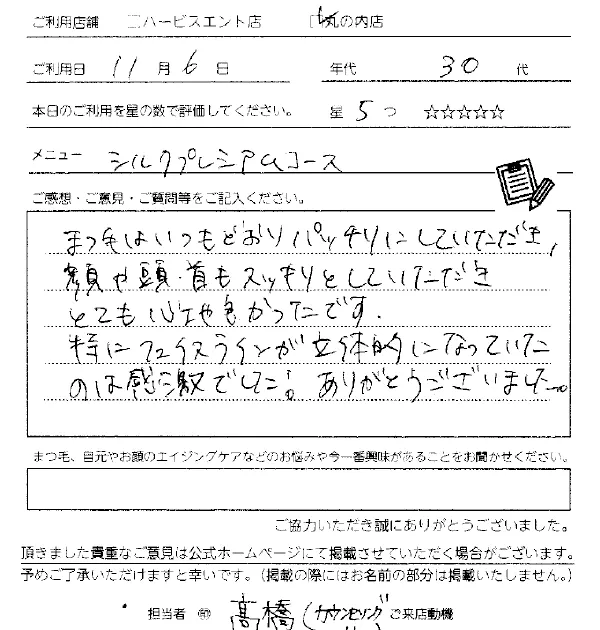 ご利用店舗 □ハービスエント店 丸の内店
ご利用日 11月6日 年代 30代
本日のご利用を星の数で評価してください。 星5つ ☆☆☆☆☆
メニュー シルクプレミアムコース
ご感想・ご意見・ご質問等をご記入ください。
まつ毛はいつもどおりパッチリにしていただき、
顔や頭・首もスッキリとしていただき
とても心地良かったです.
特にフェイスラインが立体的になっていた
のは感激でした!。ありがとうございました。
まつ毛、目元やお顔のエイジングケアなどのお悩みや今一番興味があることをお聞かせください。
ご協力いただき誠にありがとうございました。
頂きました貴重なご意見は公式ホームページにて掲載させていただく場合がございます。
予めご了承いただけますと幸いです。(掲載の際にはお名前の部分は掲載いたしません。)
担当者 ㊞ 高橋(カウンセリング ご来店動機